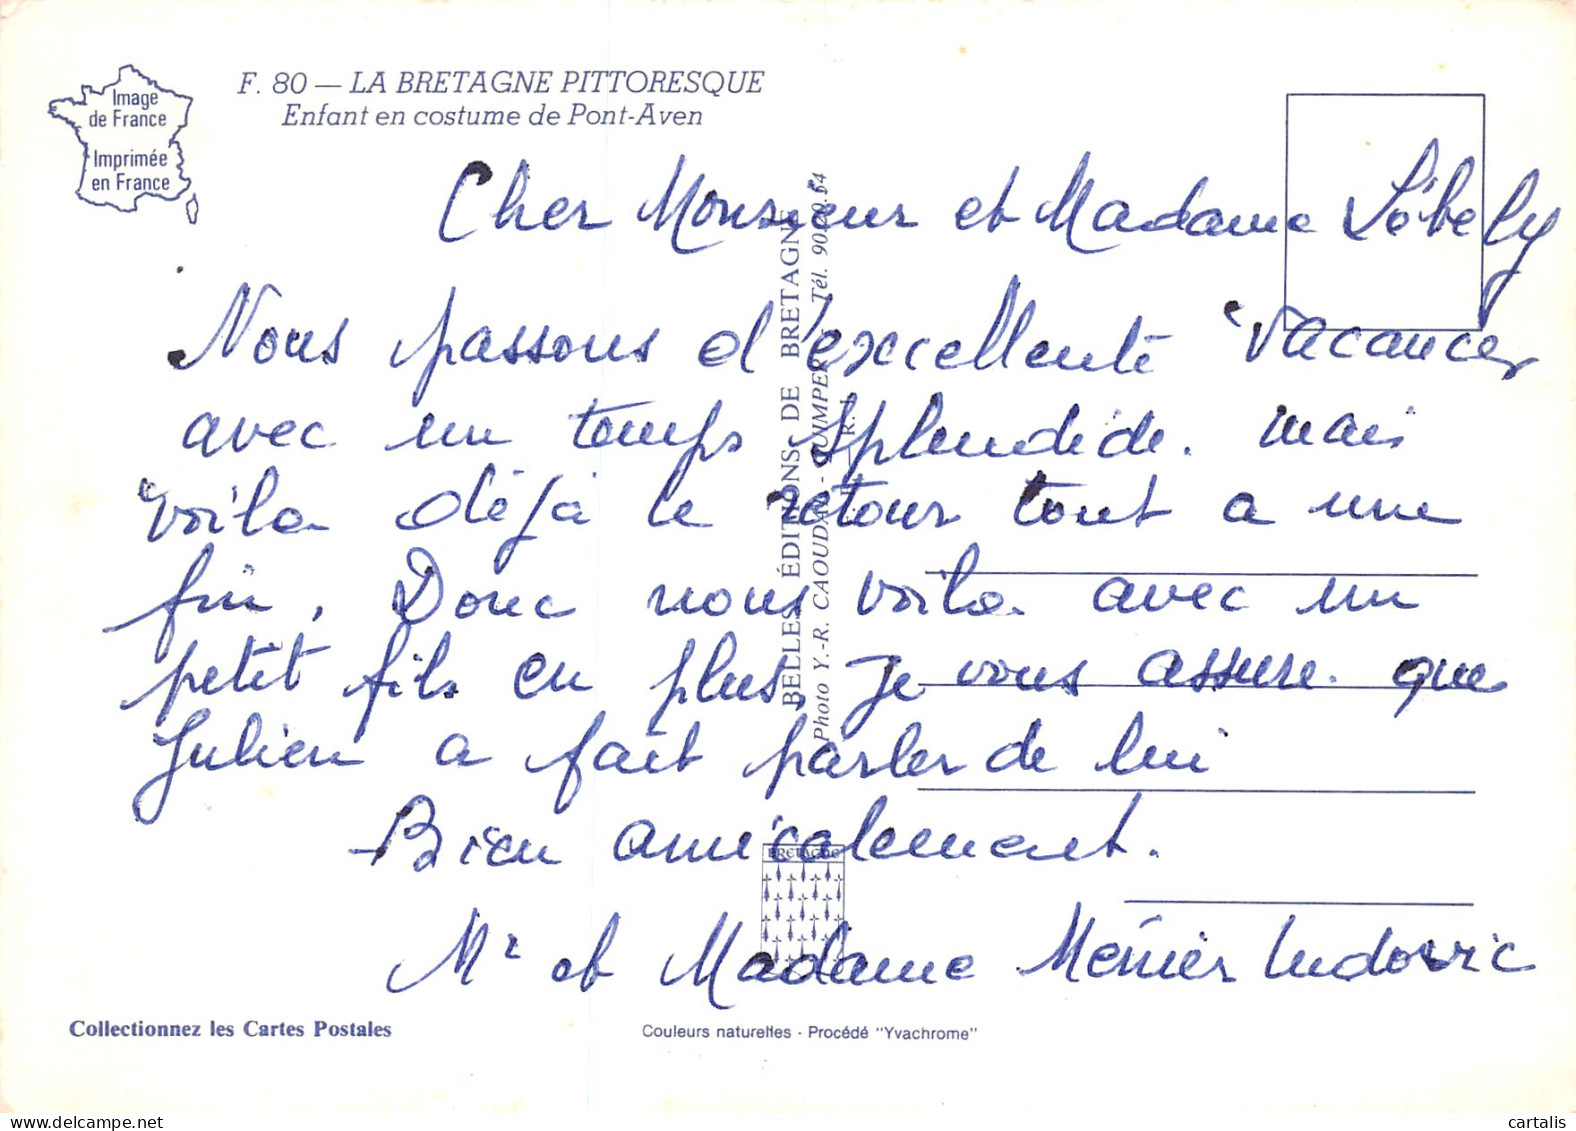 Image
de France
Imprimée
en France
F. 80 — LA BRETAGNE PITTORESQUE
Enfant en costume de Pont-Aven
Cher Monsieur et Madame
Nous passons d'excellente vacances
avec un temps splendide. mais
voila déjà le retour tout a une
fin. Donc nous voila avec un
petit fils en plus. Je vous assure que
Julien a fait parler de lui
Bien amicalement.
Mr et Madame Ludovic
BELLES ÉDITIONS DE BRETAGNE
Photo Y.-R. CAOUDAL - QUIMPER Tél.
BRETAGNE
Collectionnez les Cartes Postales
Couleurs naturelles - Procédé "Yvachrome"
cartalis